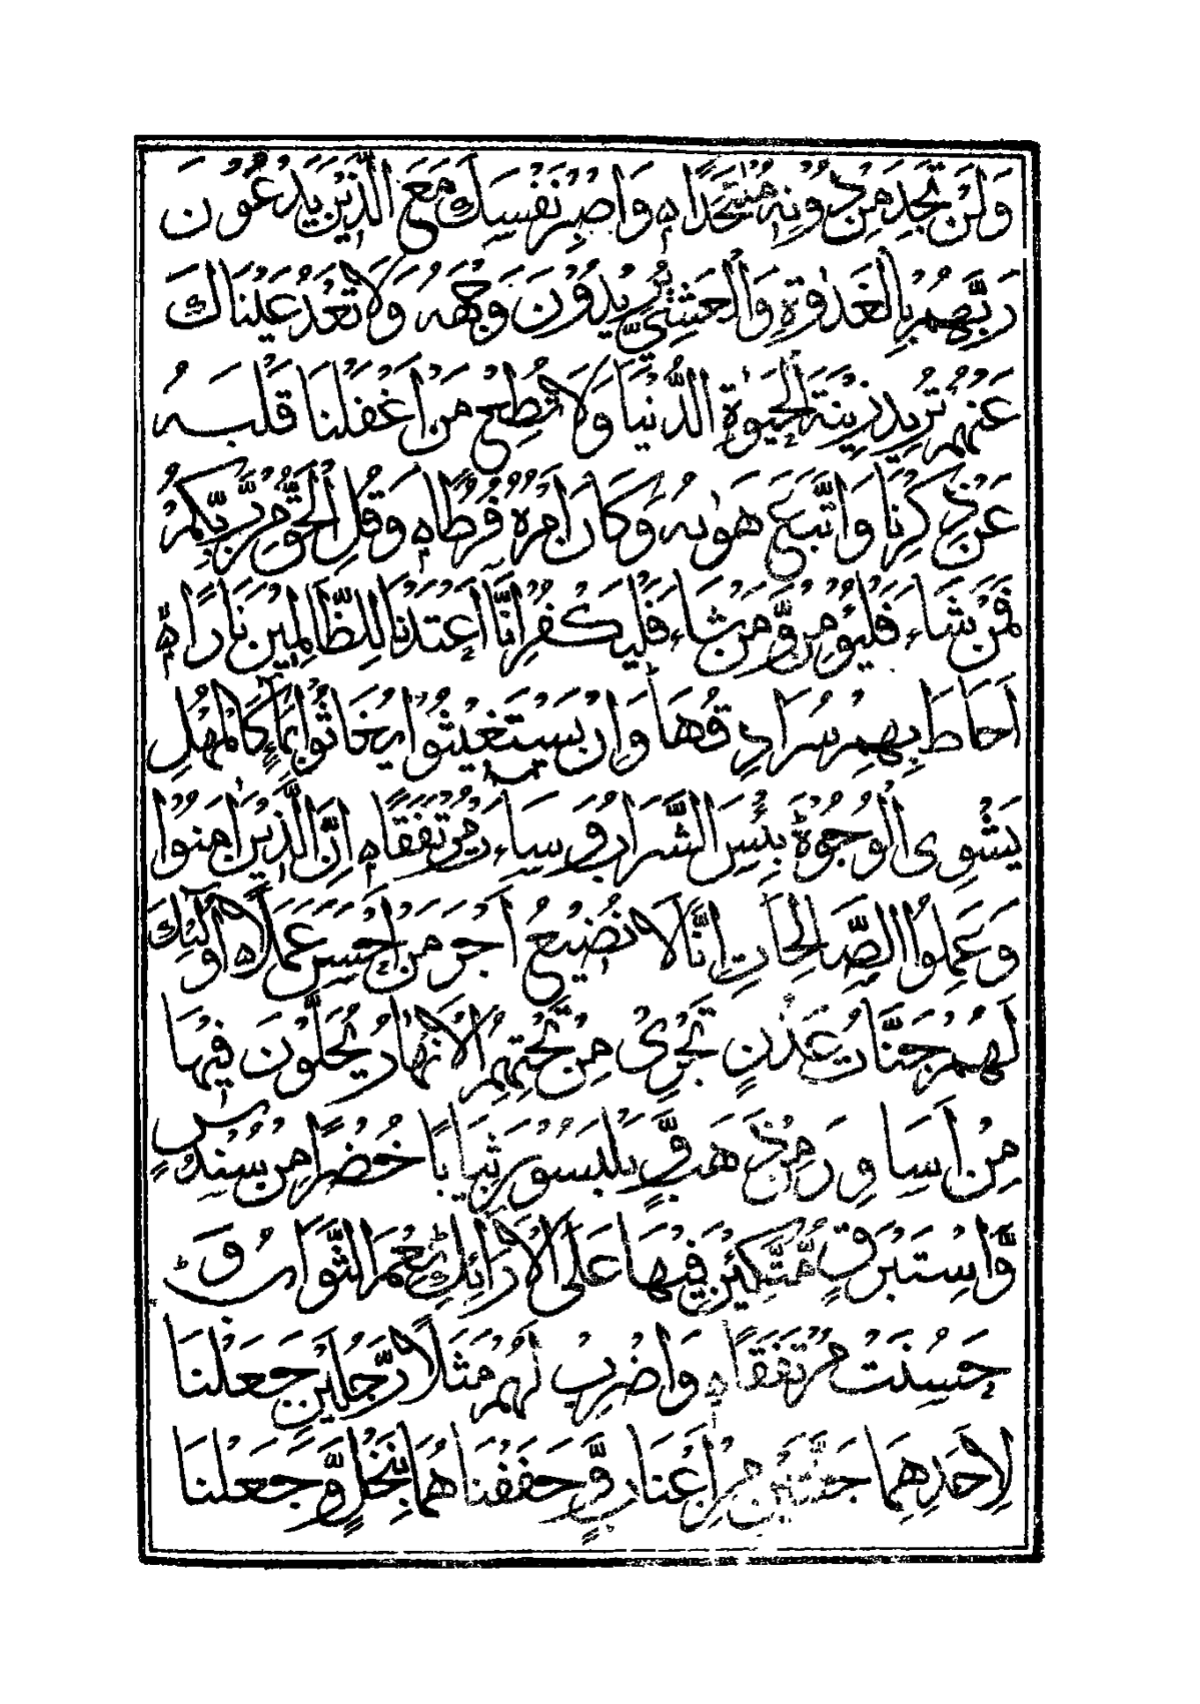 وَلَنْ تَجِدَ مِنْ دُوْنِهٖ مُلْتَحَدًا ٥ وَاصْبِرْ نَفْسَكَ مَعَ الَّذِيْنَ يَدْعُوْنَ
رَبَّهُمْ بِالْغَدٰوةِ وَالْعَشِيِّ يُرِيْدُوْنَ وَجْهَهٗ وَلَا تَعْدُ عَيْنَاكَ
عَنْهُمْ تُرِيْدُ زِيْنَةَ الْحَيٰوةِ الدُّنْيَا وَلَا تُطِعْ مَنْ اَغْفَلْنَا قَلْبَهٗ
عَنْ ذِكْرِنَا وَاتَّبَعَ هَوٰىهُ وَكَانَ اَمْرُهٗ فُرُطًا ٥ وَقُلِ الْحَقُّ مِنْ رَّبِّكُمْ
فَمَنْ شَاءَ فَلْيُؤْمِنْ وَّمَنْ شَاءَ فَلْيَكْفُرْ اِنَّا اَعْتَدْنَا لِلظَّالِمِيْنَ نَارًا ٥
اَحَاطَ بِهِمْ سُرَادِقُهَا وَاِنْ يَسْتَغِيْثُوْا يُغَاثُوْا بِمَاءٍ كَالْمُهْلِ
يَشْوِى الْوُجُوْهَ بِئْسَ الشَّرَابُ وَسَاءَتْ مُرْتَفَقًا ٥ اِنَّ الَّذِيْنَ اٰمَنُوْا
وَعَمِلُوا الصَّالِحَاتِ اِنَّا لَا نُضِيْعُ اَجْرَ مَنْ اَحْسَنَ عَمَلًا ٥ اُولٰٓئِكَ
لَهُمْ جَنَّاتُ عَدْنٍ تَجْرِىْ مِنْ تَحْتِهِمُ الْاَنْهَارُ يُحَلَّوْنَ فِيْهَا
مِنْ اَسَاوِرَ مِنْ ذَهَبٍ وَّيَلْبَسُوْنَ ثِيَابًا خُضْرًا مِنْ سُنْدُسٍ
وَّاِسْتَبْرَقٍ مُّتَّكِئِيْنَ فِيْهَا عَلَى الْاَرَائِكِ نِعْمَ الثَّوَابُ وَ
حَسُنَتْ مُرْتَفَقًا ٥ وَاضْرِبْ لَهُمْ مَثَلًا رَّجُلَيْنِ جَعَلْنَا
لِاَحَدِهِمَا جَنَّتَيْنِ مِنْ اَعْنَابٍ وَّحَفَفْنَاهُمَا بِنَخْلٍ وَّجَعَلْنَا